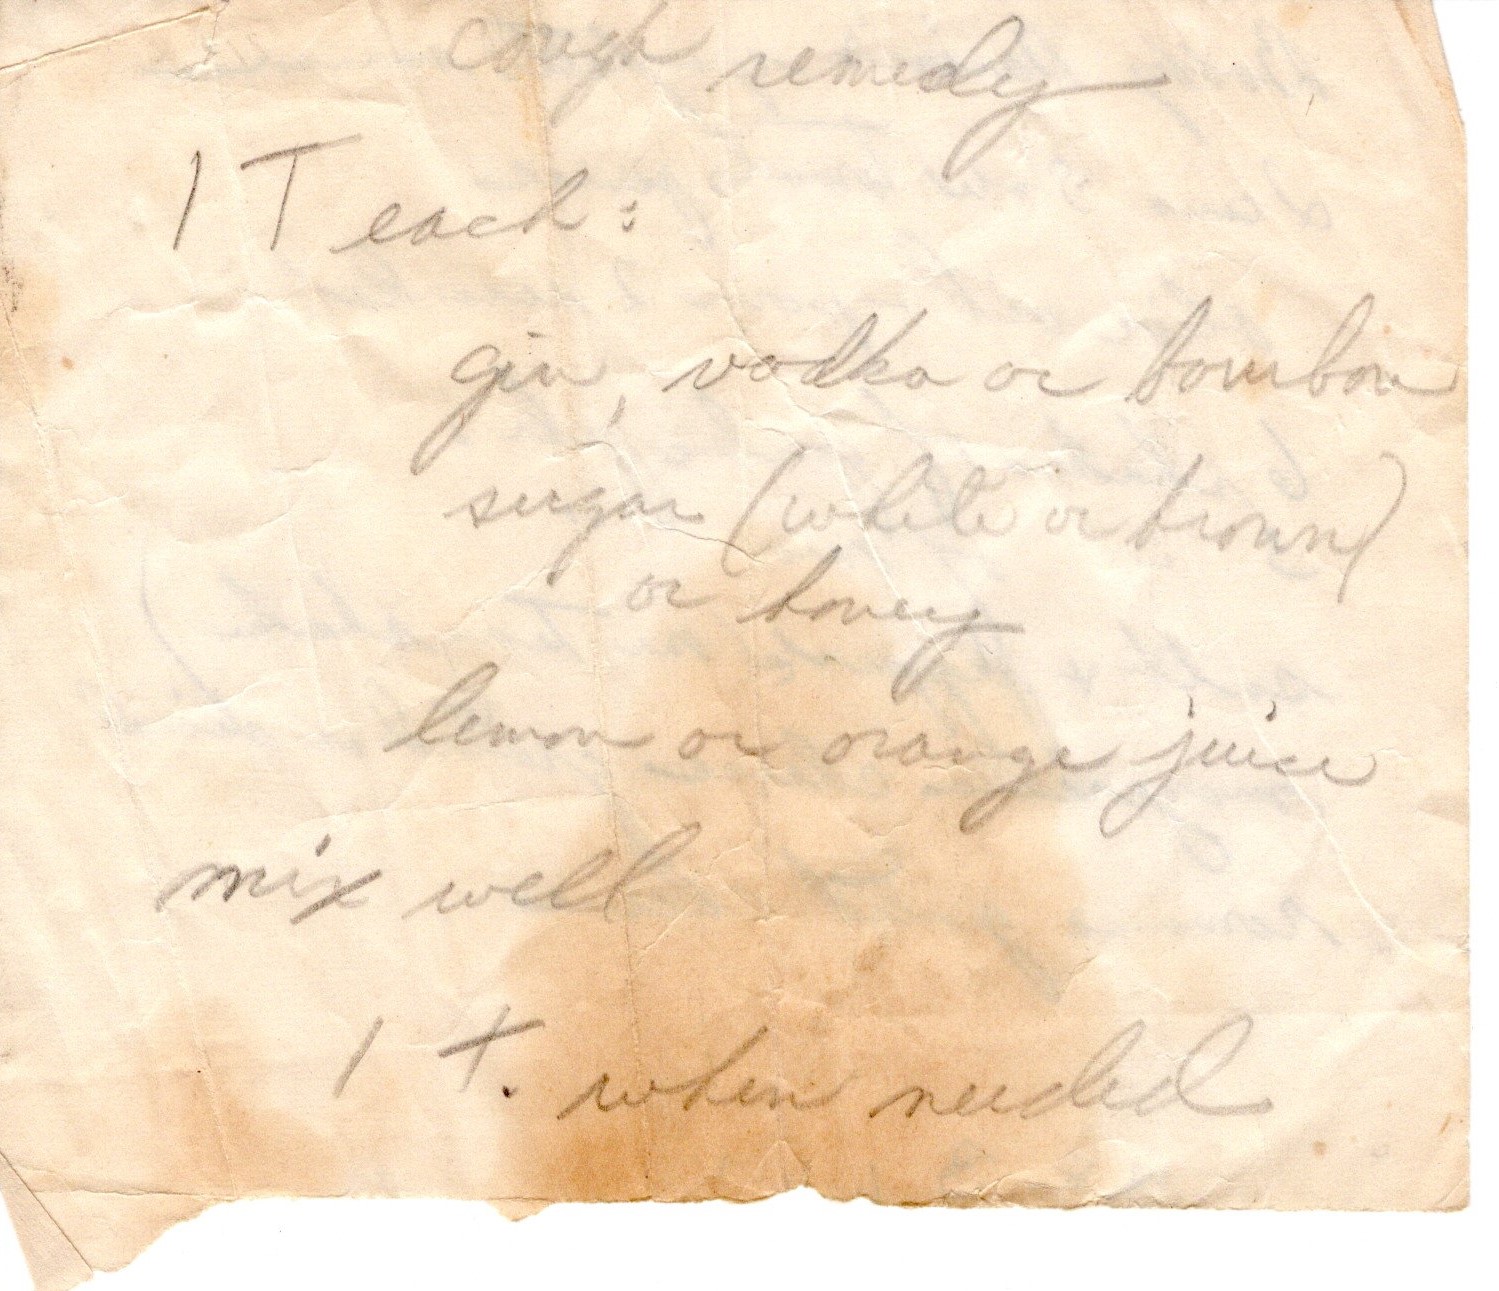 cough remedy
1 T each:
gin, vodka or bourbon
sugar (white or brown)
or honey
lemon or orange juice
mix well
1 t. when needed